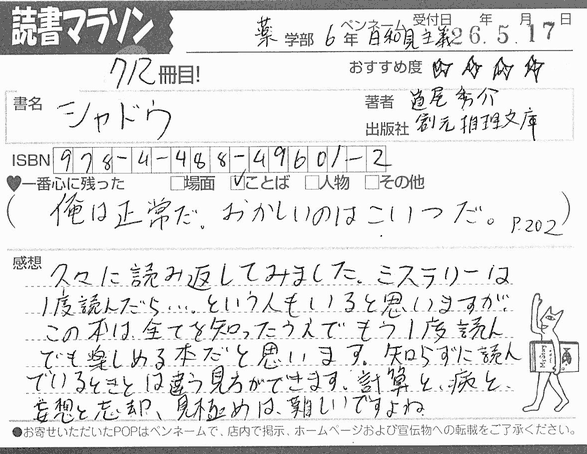 読書マラソン
薬 学部 6 年 ペンネーム 日和見主義 受付日 26. 年 5. 月 17 日
712 冊目! おすすめ度 ☆☆☆☆
書名 シャドウ
著者 道尾秀介
出版社 創元推理文庫
ISBN 978-4-488-49601-2
♥一番心に残った □場面 ☑ことば □人物 □その他
(俺は正常だ。おかしいのはこいつだ。 P.202)
感想
久々に読み返してみました。ミステリーは
1度読んだら…. という人もいると思いますが、
この本は、全てを知ったうえでもう1度読ん
でも楽しめる本だと思います。知らずに読ん
でいるときとは違う見方ができます。計算と、病と、
妄想と忘却、見極めは、難しいですよね
●お寄せいただいたPOPはペンネームで、店内で掲示、ホームページおよび宣伝物への転載をご了承ください。